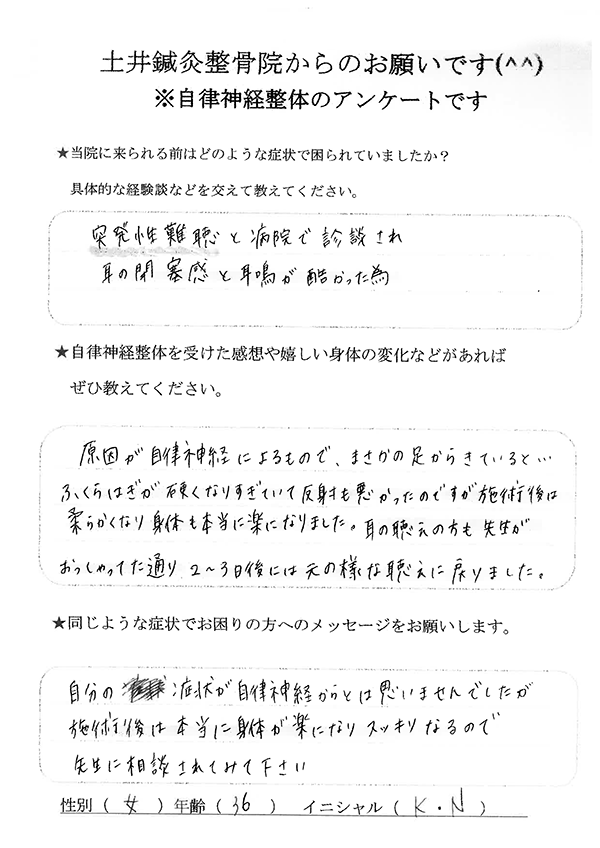 土井鍼灸整骨院からのお願いです(^^)
※自律神経整体のアンケートです
★当院に来られる前はどのような症状で困られていましたか？
具体的な経験談などを交えて教えてください。
突発性難聴と病院で診談され
耳の閉塞感と耳鳴が酷かった為
★自律神経整体を受けた感想や嬉しい身体の変化などがあれば
ぜひ教えてください。
原因が自律神経によるもので、まさかの足からきていると…
ふくらはぎが硬くなりすぎていて反射も悪かったのですが施術後は
柔らかくなり身体も本当に楽になりました。耳の聴えの方も先生が
おっしゃってた通り 2～3日後には元の様な聴えに戻りました。
★同じような症状でお困りの方へのメッセージをお願いします。
自分の 症状が自律神経からとは思いませんでしたが
施術後は本当に身体が楽になりスッキリなるので
先生に相談されてみて下さい
性別（ 女 ）年齢（ 36 ） イニシャル（ K・N ）